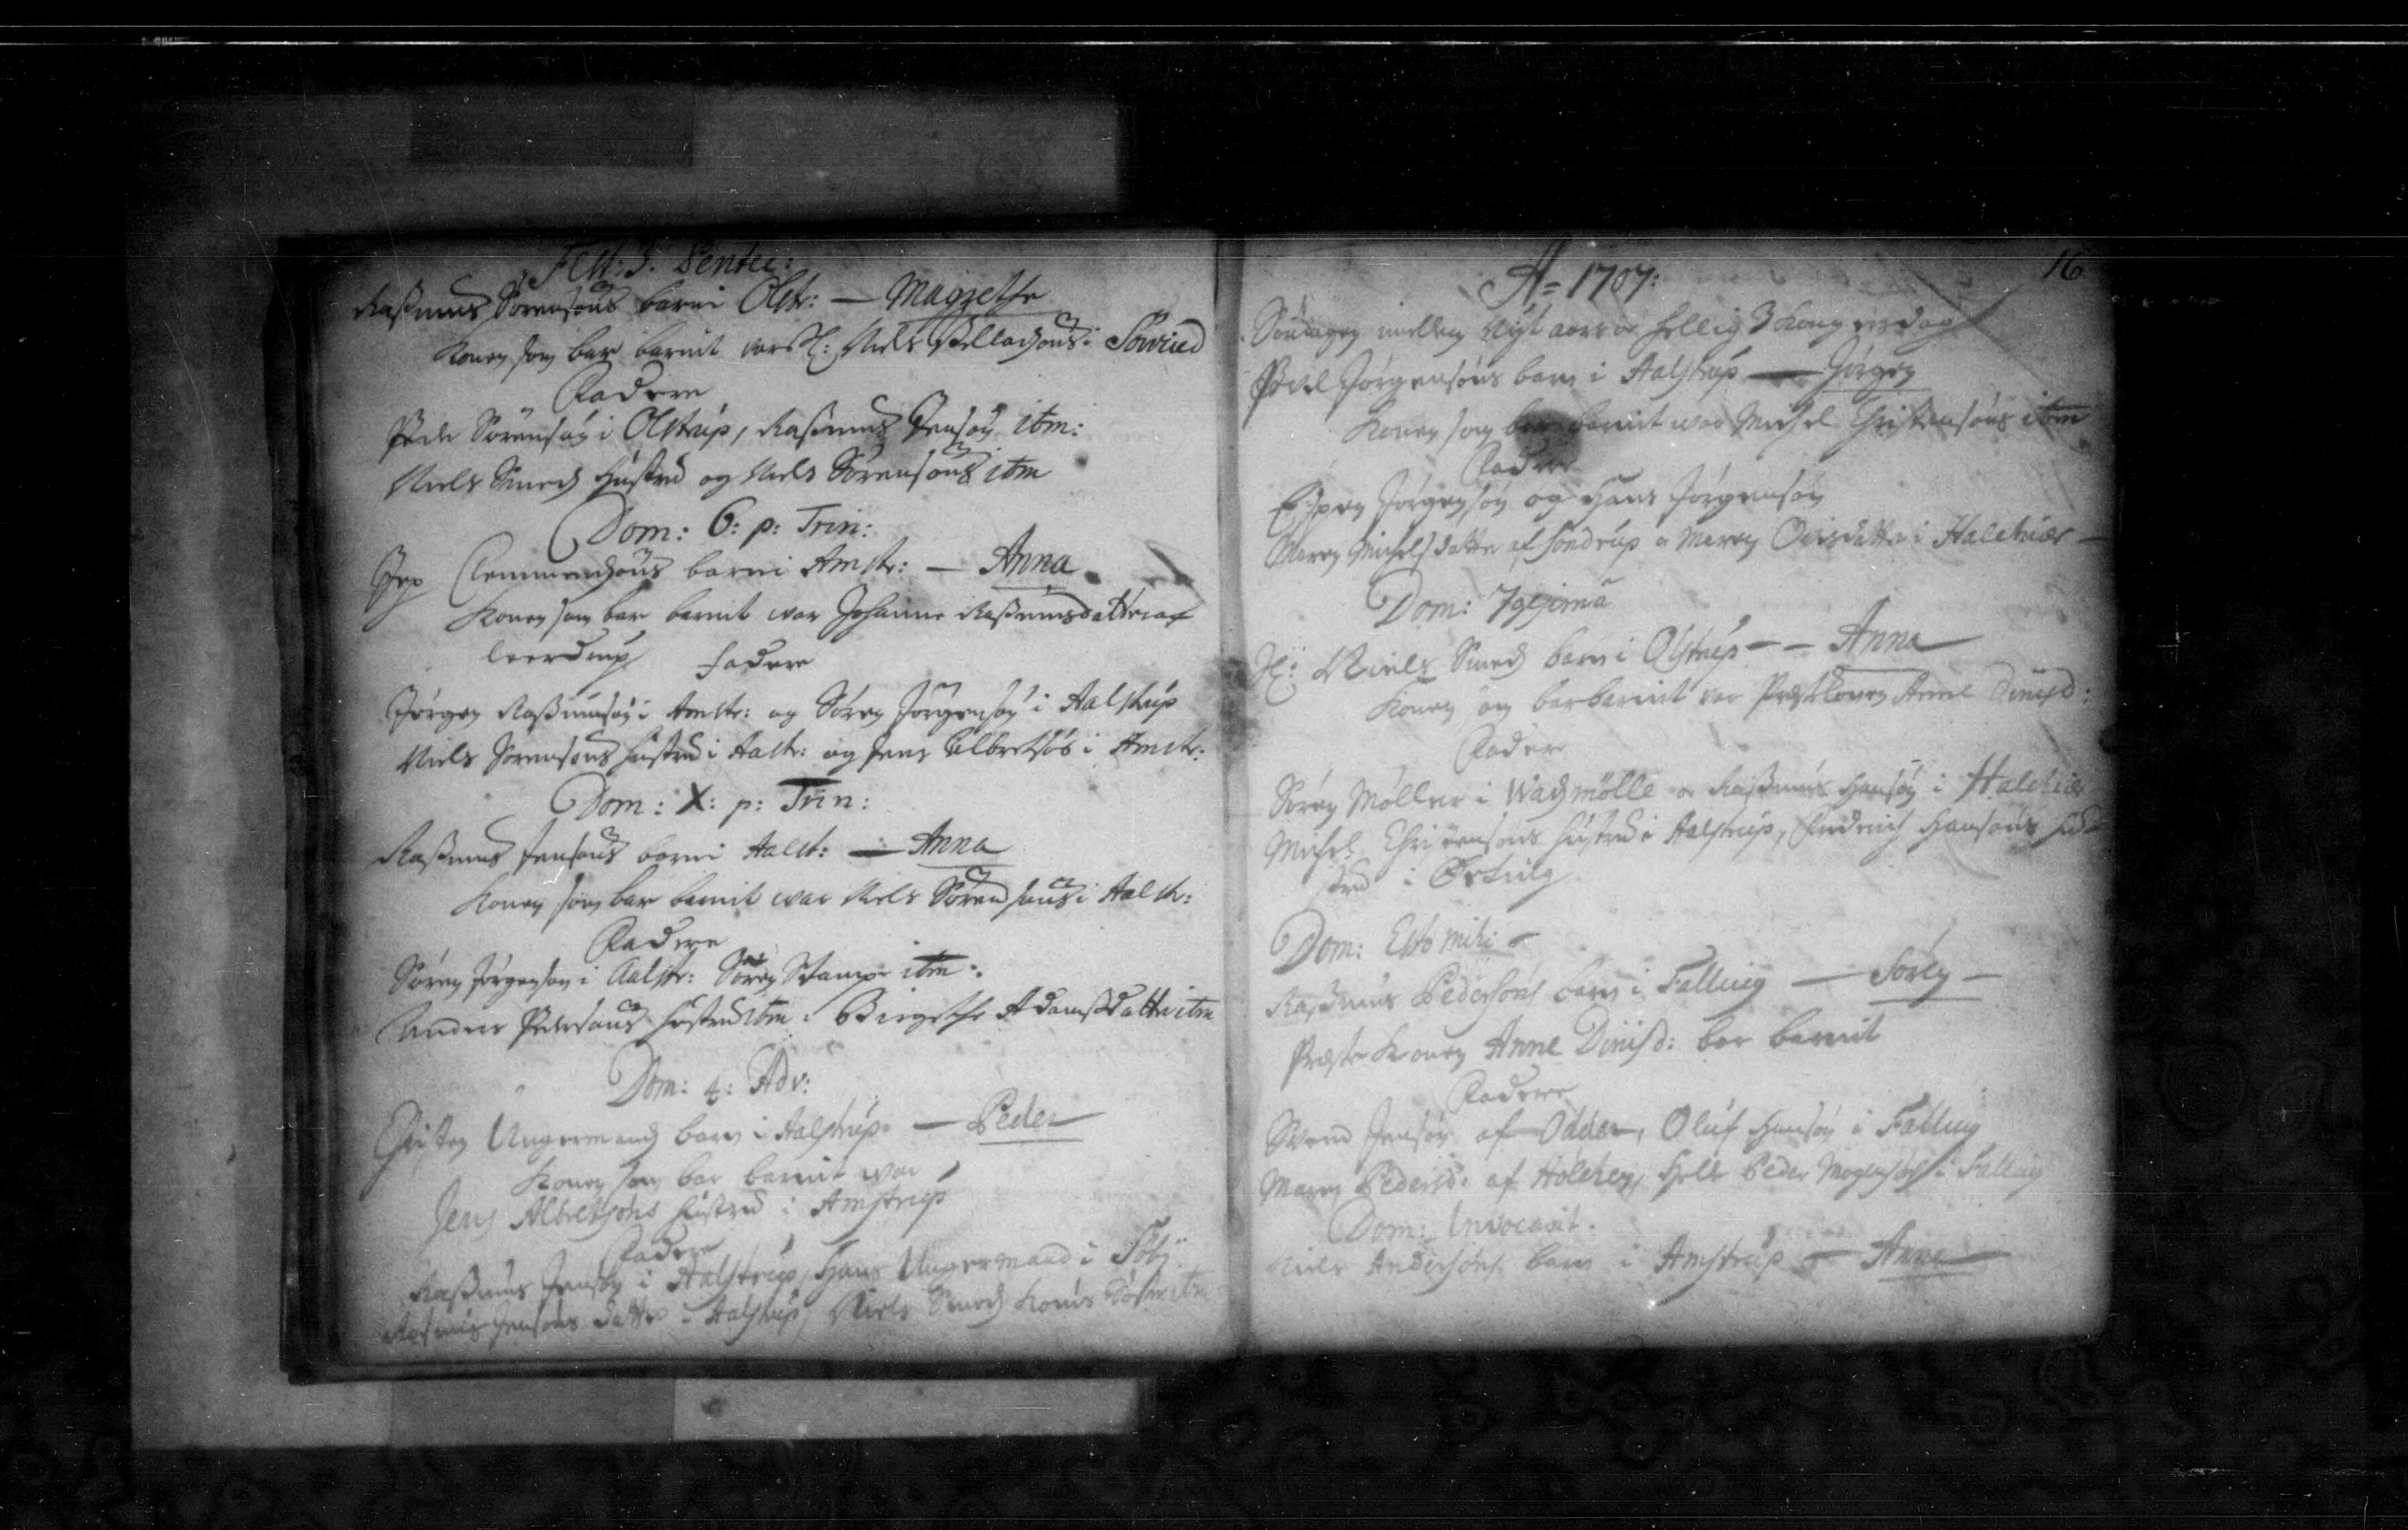 Fest: 3. Pentec:
Rasmus Sørensøns barn i Olst: — Magrethe
Konen som bar barnit var H: Niels Pallesøns i Søvind
Faddere
Peder Sørensøn i Olstrup, Rasmus Jensøn itm:
Niels Smeds hustrue og Niels Sørensøns itm
Dom: 6: p: Trin:
Jep Clemmendsøns barn i Amstr: — Anna
Konen som bar barnit war Johanne Rasmusdatter af
leerdrup faddere
Jørgen Rasmusøn i Amstr: og Søren Jørgensøn i Aalstrup
Niels Sørensøns hustrue i Aalstr: og Jens Albretsøns i Amstr:
Dom: X: p: Trin:
Rasmus Jensøns barn i Aalst: — Anna
Konen som bar barnit war Niels Sørensøns i Aalstr:
Faddere
Søren Jørgensøn i Aalstr: Søren Stampe itm:
Anders Pedersøns hustrue itm: Birgethe Adamsdatter itm
Dom: 4: Adv:
Christen Ungermands barn i Aalstrup — Peder
Konen som bar barnit war
Jens Albretsøns hustrue i Amstrup
Faddere
Rasmus Jensøn i Aalstrup, Hans Ungermand i Søby
Rasmus Jensøns datter i Aalstrup, Niels Smeds Konis Søster itm
16
A= 1707:
Søndagen mellem Nyt aars oc hellig 3 Kongersdag
Povel Jørgensøns barn i Aalstrup — Jørgen
Konen som bar barnit war Michel Christensøns itm
Faddere
Espen Jørgensøn og Hans Jørgensøn
Maren Michelsdatter af Søndrup oc Maren Ovisdatter i Halchiær —
Dom: 7gesima
H: Niels Smeds barn i Olstrup — — Anna
Konen som bar barnit var Præstkonen Anne Dinisd:
Faddere
Søren Møller i Wadsmølle oc Rasmus Hansøn i Halchiær
Michel Christensøns hustrue i Aalstrup, Fridrich Hansøns hu-
strue i Ørting
Dom: Esto mihi
Rasmus Pedersøns barn i Falling — Søren —
Præste Konen Anne Dinisd: bar barnit
Faddere
Svend Jensøn af Odder, Oluf Hansøn i Falling
Maren Pedersd: af Peder Mogensøn i Falling
Dom: Invocavit.
Niels Andersøns barn i Amstrup — Anna